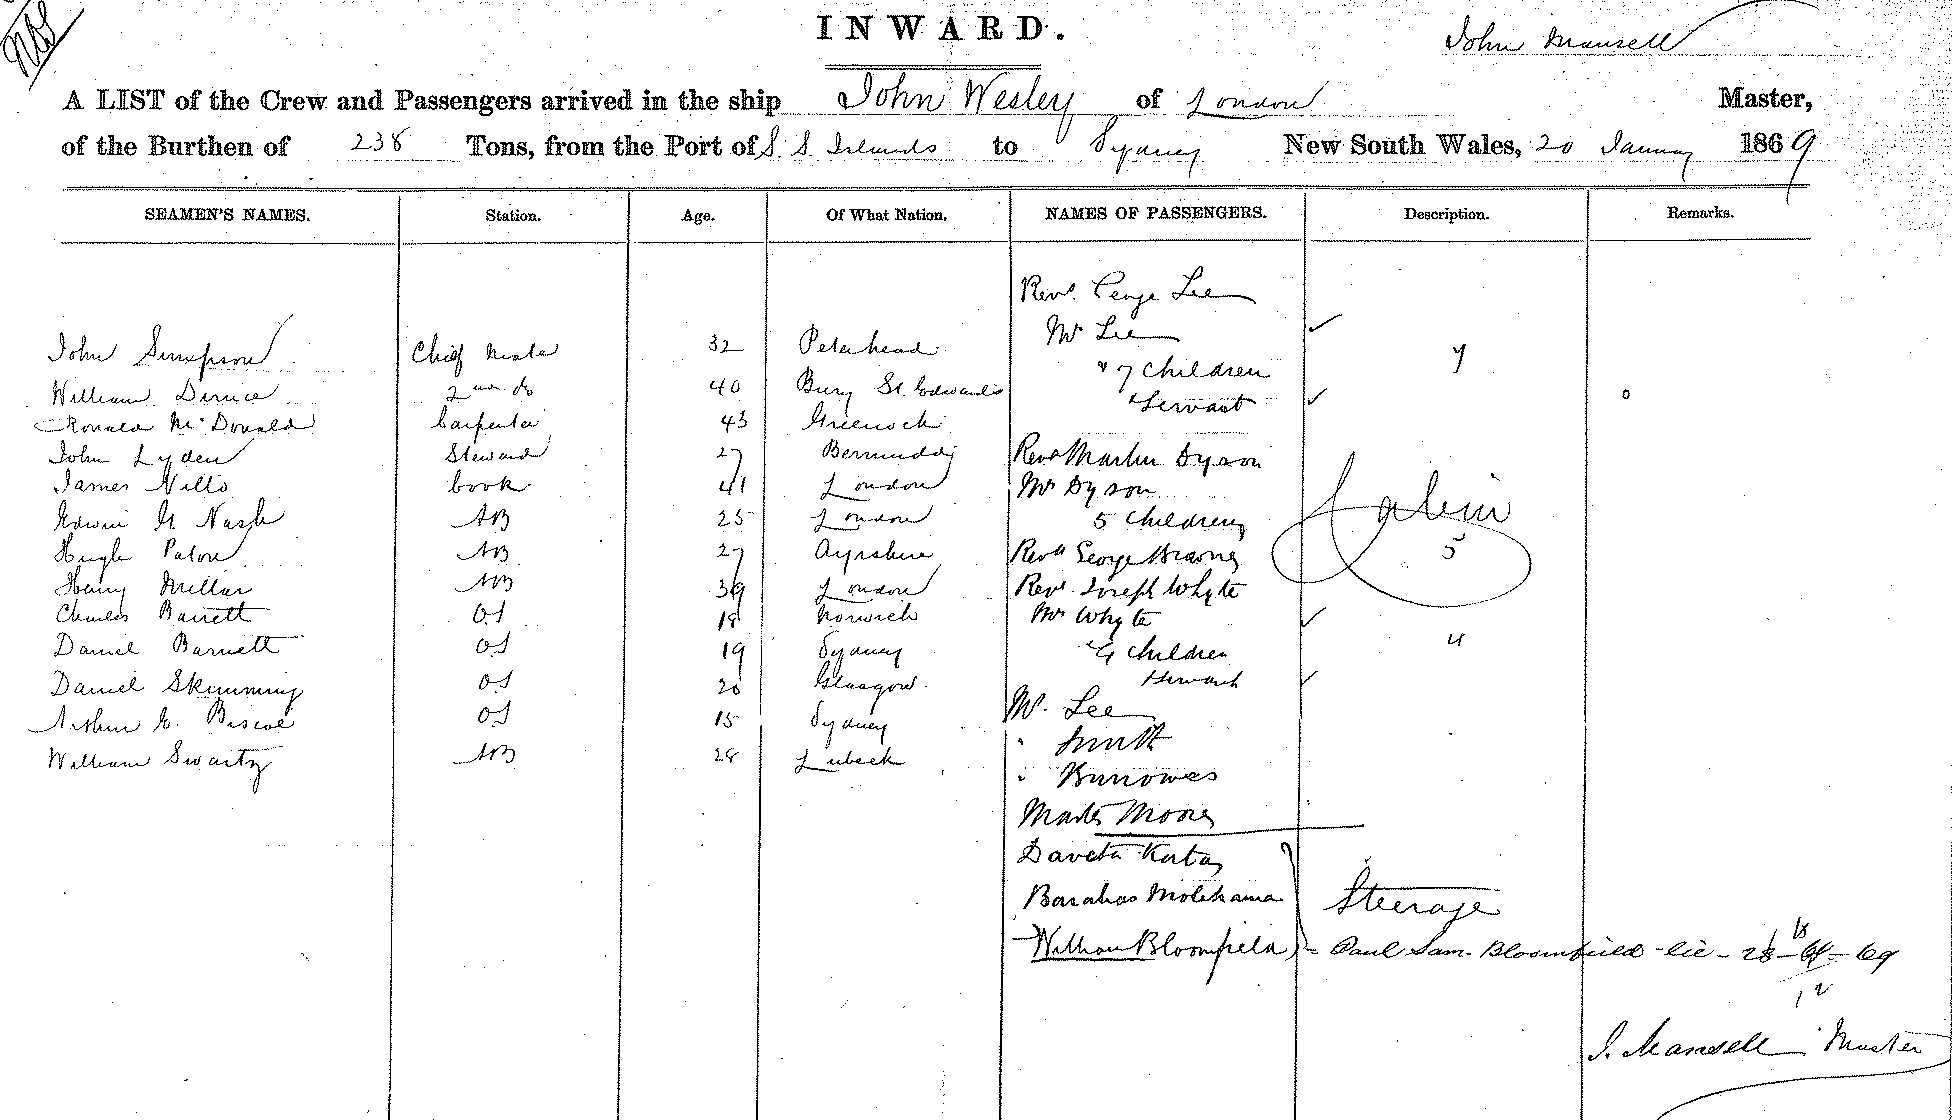 INWARD.
John Mansell
A LIST of the Crew and Passengers arrived in the ship John Wesley of London Master,
of the Burthen of 238 Tons, from the Port of S. S. Islands to Sydney New South Wales, 20 January 1869
SEAMEN'S NAMES. Station. Age. Of What Nation. NAMES OF PASSENGERS. Description. Remarks.
Revd. George Lee
Mrs Lee
John Simpson Chief Mate 32 Peterhead
" 7 Children 7
William 2nd do 40 Bury St Edwards
" Servant
Ronald McDonald Carpenter 43 Greenock
John Lyden Steward 27 Revd Martin Dyson
James Nills Cook 41 London Mrs Dyson
Edwin H Nash AB 25 London 5 Children
Cabin
Hugh Paton AB 27 Ayrshire Revd George Brown 5
Henry Millar AB 39 London Revd. Joseph Whyte
Charles Barrett OS 18 Norwich Mrs Whyte
Daniel Barnett OS 19 Sydney 4 Children 4
Daniel Skimming OS 20 Glasgow Servant
Arthur E. Biscoe OS 15 Sydney Mr. Lee
" Smith
William Swartz AB 28 Lubeck
" Burrowes
Master Moore
Daveta Kata
Barabas Molehama Steerage
William Bloomfield - Paul Sam. Bloomfield - lic - 28 - 69
12
J. Mansell Master